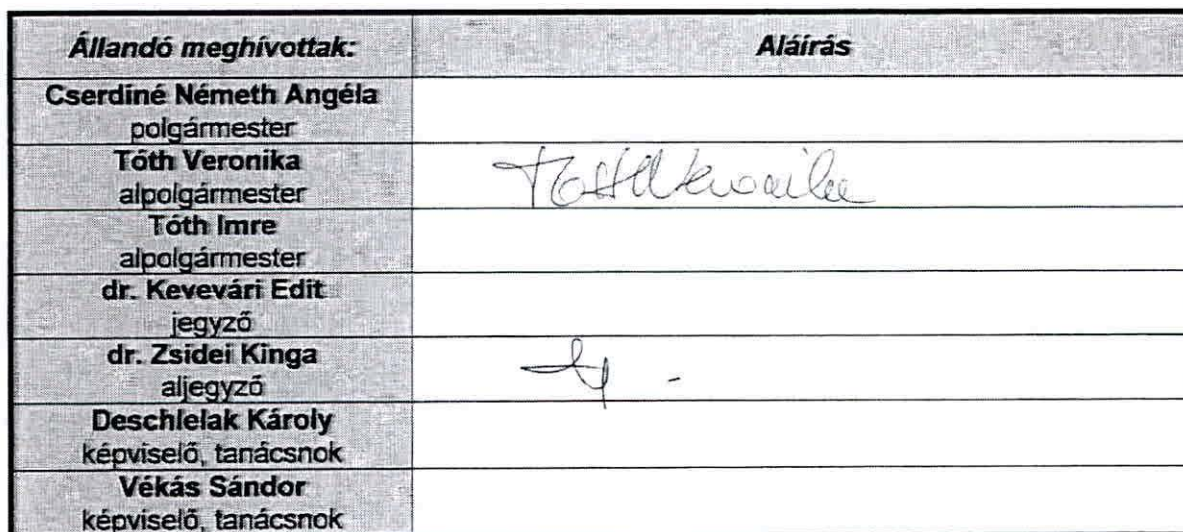 Állandó meghívottak: Aláírás
Cserdiné Németh Angéla
polgármester
Tóth Veronika
alpolgármester
Tóth Veronika
Tóth Imre
alpolgármester
dr. Kevevári Edit
jegyző
dr. Zsidei Kinga
aljegyző
Deschlelak Károly
képviselő, tanácsnok
Vékás Sándor
képviselő, tanácsnok